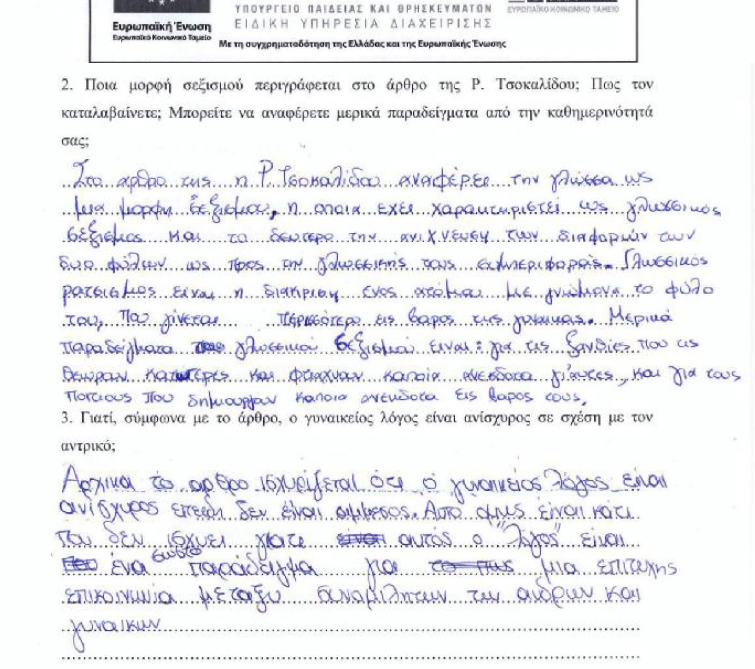 ΥΠΟΥΡΓΕΙΟ ΠΑΙΔΕΙΑΣ ΚΑΙ ΘΡΗΣΚΕΥΜΑΤΩΝ
ΕΙΔΙΚΗ ΥΠΗΡΕΣΙΑ ΔΙΑΧΕΙΡΙΣΗΣ
ΕΥΡΩΠΑΪΚΟ ΚΟΙΝΩΝΙΚΟ ΤΑΜΕΙΟ
Ευρωπαϊκή Ένωση
Ευρωπαϊκό Κοινωνικό Ταμείο
Με τη συγχρηματοδότηση της Ελλάδας και της Ευρωπαϊκής Ένωσης
2. Ποια μορφή σεξισμού περιγράφεται στο άρθρο της Ρ. Τσοκαλίδου; Πως τον
καταλαβαίνετε; Μπορείτε να αναφέρετε μερικά παραδείγματα από την καθημερινότητά
σας;
Στο αρθρο της η Ρ. Τσοκαλίδου αναφέρει την γλώσσα ως
μια μορφη σεξισμου, η οποια εχει χαρακτηριστει ως γλωσσικος
σεξισμος και το δευτερο την ανιχνευση των διαφορών των
δυο φύλων ως προς την γλωσσικής τους συμπεριφοράς. Γλωσσικός
ρατσισμος είναι η διακριση ενος ατόμου με γνώμονα το φύλο
του, που γίνεται περισσότερο εις βαρος της γυναικας. Μερικά
παραδείγματα γλωσσικου σεξισμού ειναι: για τις ξανθίες που τις
θεωρουν κατωτερες και φτιαχνουν καποια ανεκδοτα γι'αυτες, και για τους
Ποντιους που δημιουργουν καποια ανεκδοτα εις βαρος τους.
3. Γιατί, σύμφωνα με το άρθρο, ο γυναικείος λόγος είναι ανίσχυρος σε σχέση με τον
αντρικό;
Αρχικα το αρθρο ισχυρίζεται ότι ο γυναικείος λόγος είναι
ανίσχυρος επειδή δεν είναι αμμεσος. Αυτο ομως είναι κάτι
που δεν ισχυει γιατι αυτός ο "λόγος" είναι
ένα σωστο παράδειγμα για μια επιτυχης
επικοινωνία μεταξυ συνομιλητων των ανδρων και
γυναικων